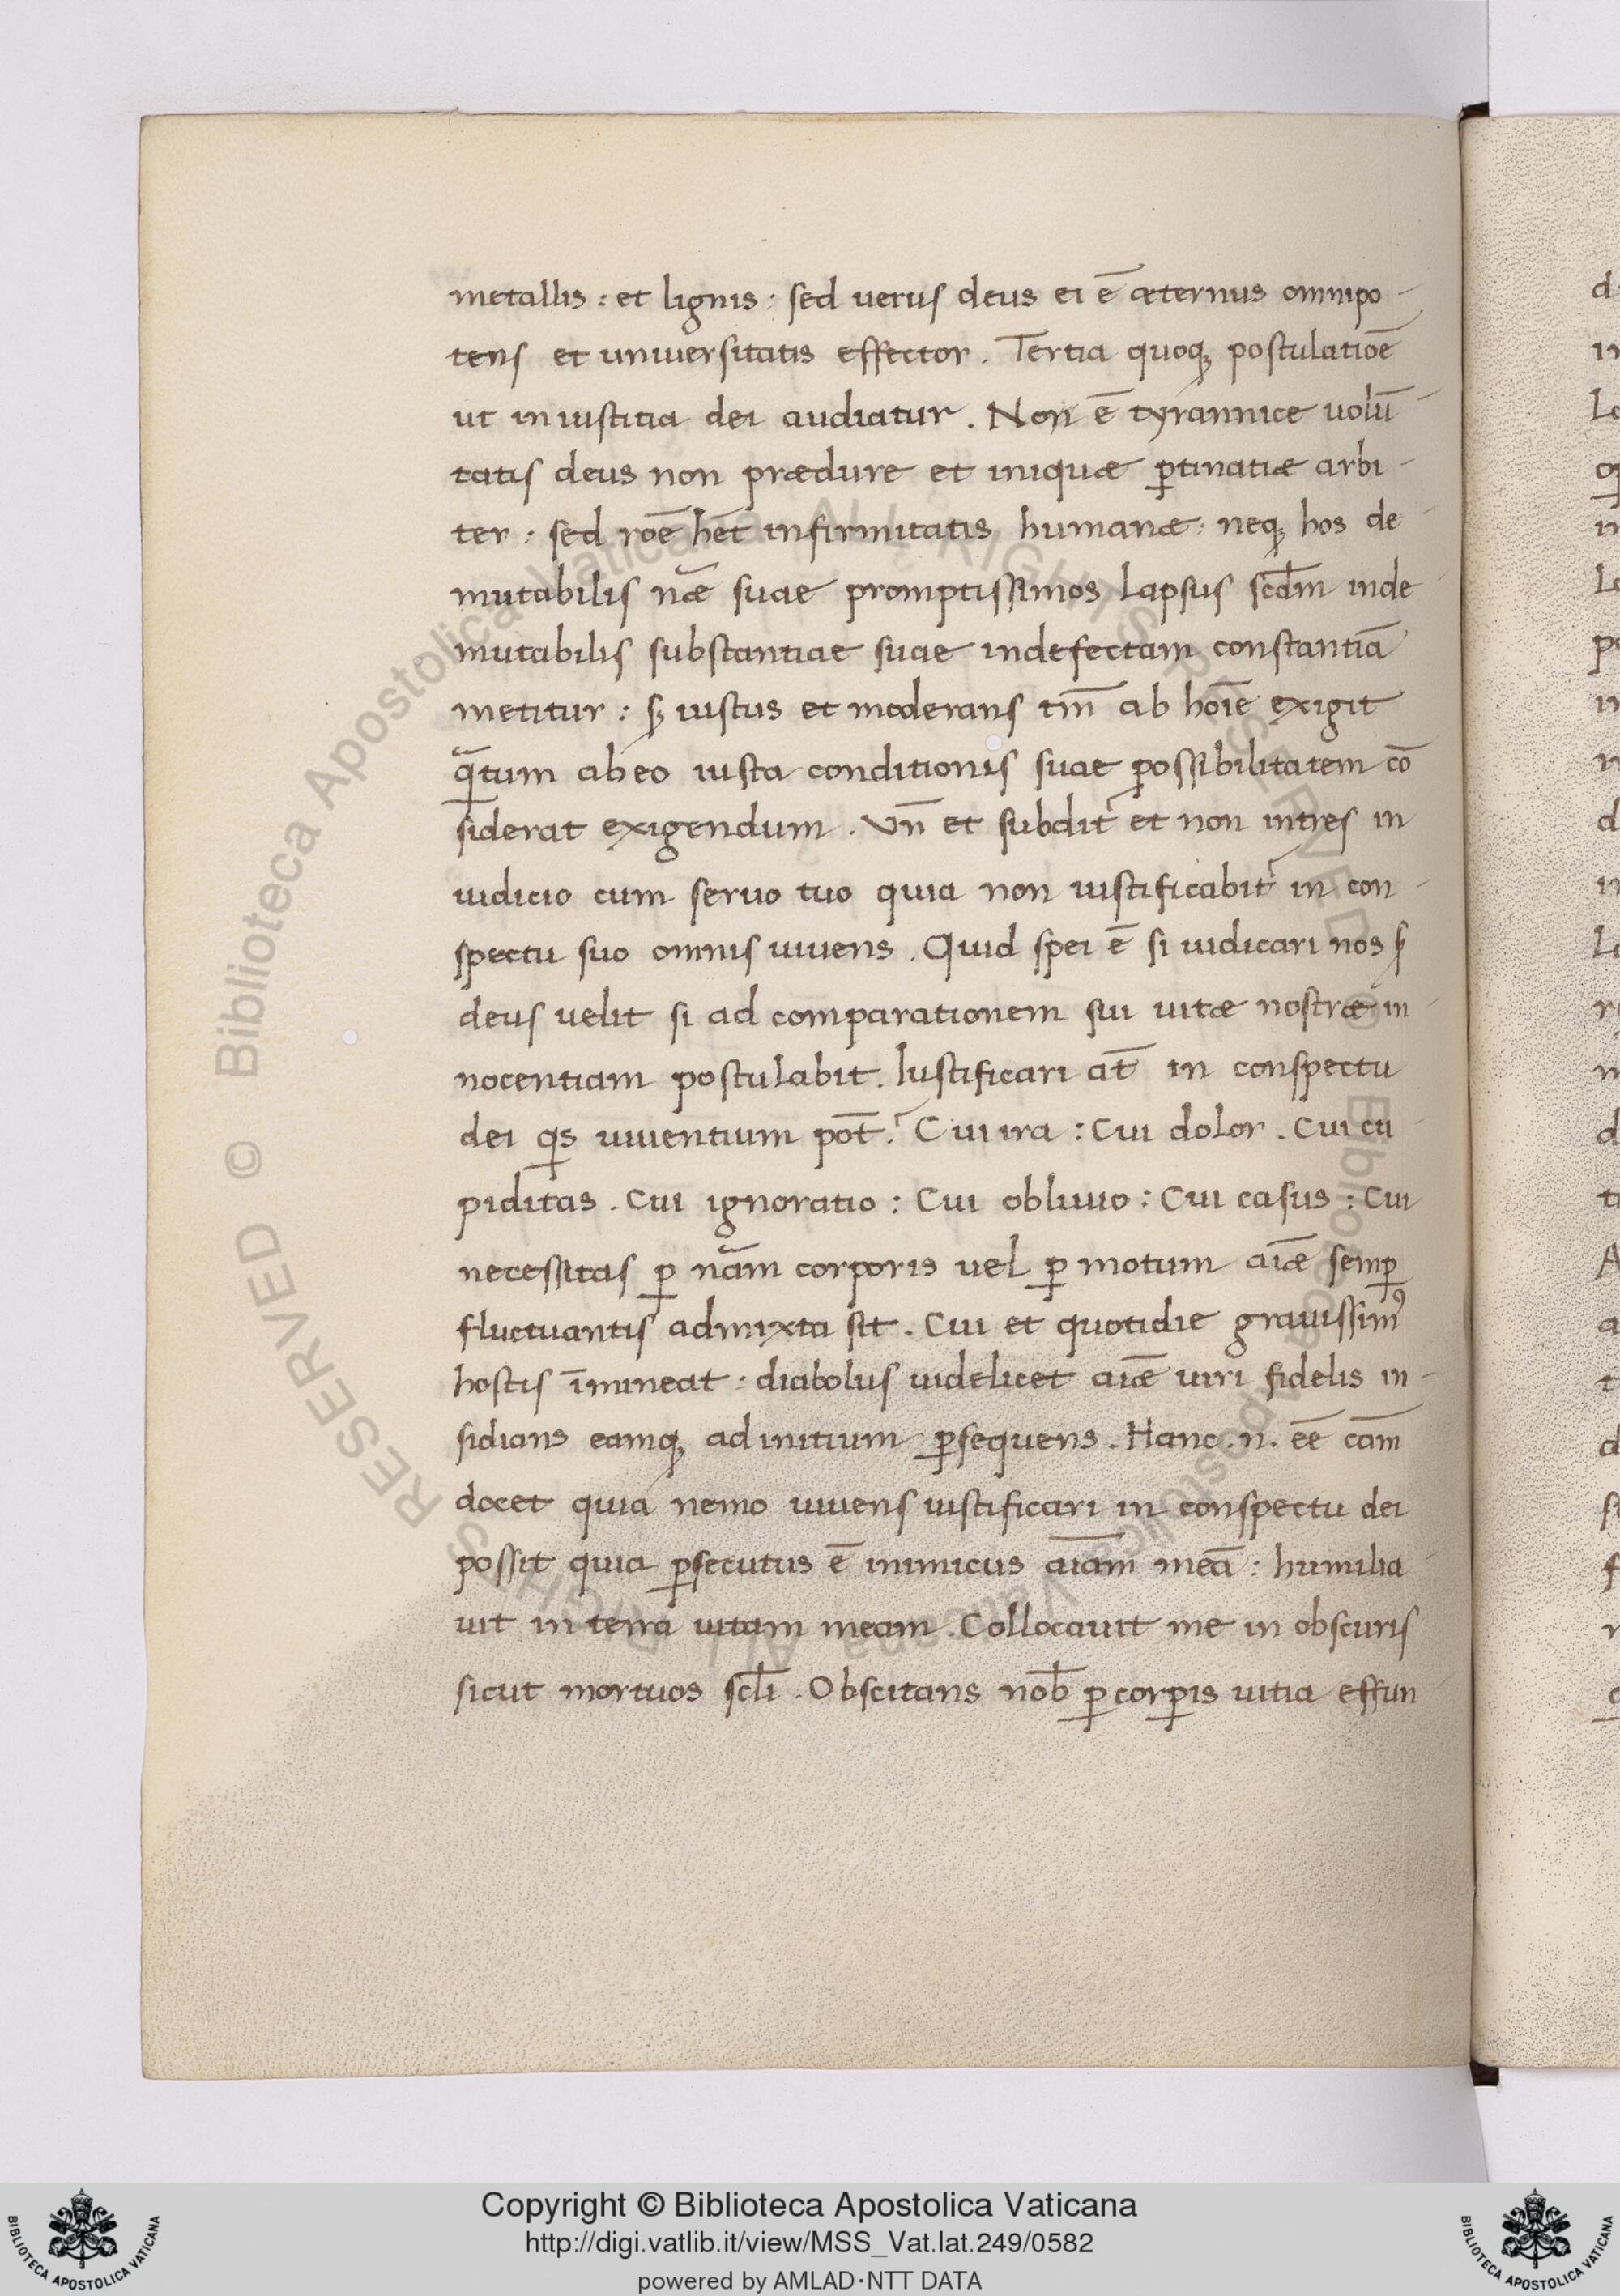 metallis : et lignis : sed uerus deus ei ē æternus omnipo-
tens et uniuersitatis effector . Tertia quoq; postulatiōe
ut in iustitia dei audiatur . Non ē tyrannice uolū
tatis deus non prædure et iniquæ ꝑtinatiæ arbi-
ter : sed rōē hēt infirmitatis humanæ : neq; hos de-
mutabilis nāe suae promptissimos lapsus scd̄m inde-
mutabilis substantiae suae indefectam constantiā
metitur : s; iustus et moderans tm̄ ab hoīe exigit
qᷓtum ab eo iusta conditionis suae possibilitatem cō
siderat exigendum . Vn̄ et subdit᷑ et non intres in
iudicio cum seruo tuo quia non iustificabit᷑ in con-
spectu suo omnis uiuens . Quid spei ē si iudicari nos
deus uelit si ad comparationem sui uitæ nostræ in-
nocentiam postulabit . Iustificari at̄ in conspectu
dei qis uiuentium pōt ? Cui ira : Cui dolor . Cui cu
piditas . Cui ignoratio : Cui obliuio : Cui casus : Cui
necessitas ꝑ nām corporis uel ꝑ motum aīæ semꝑ
fluctuantis admixta sit . Cui et quotidie grauissimꝰ
hostis īmineat : diabolus uidelicet aīæ uiri fidelis in-
sidians eamq; ad initium ꝑsequens . Hanc . n . eē cām
docet quia nemo uiuens iustificari in conspectu dei
possit quia ꝑsecutus ē inimicus aīam meā : humilia-
uit in terra uitam meam . Collocauit me in obscuris
sicut mortuos scl̄i . Obscitans nob̄ ꝑ corꝑis uitia effun-
Copyright © Biblioteca Apostolica Vaticana
http://digi.vatlib.it/view/MSS_Vat.lat.249/0582
powered by AMLAD·NTT DATA
BIBLIOTECA APOSTOLICA VATICANA
BIBLIOTECA APOSTOLICA VATICANA